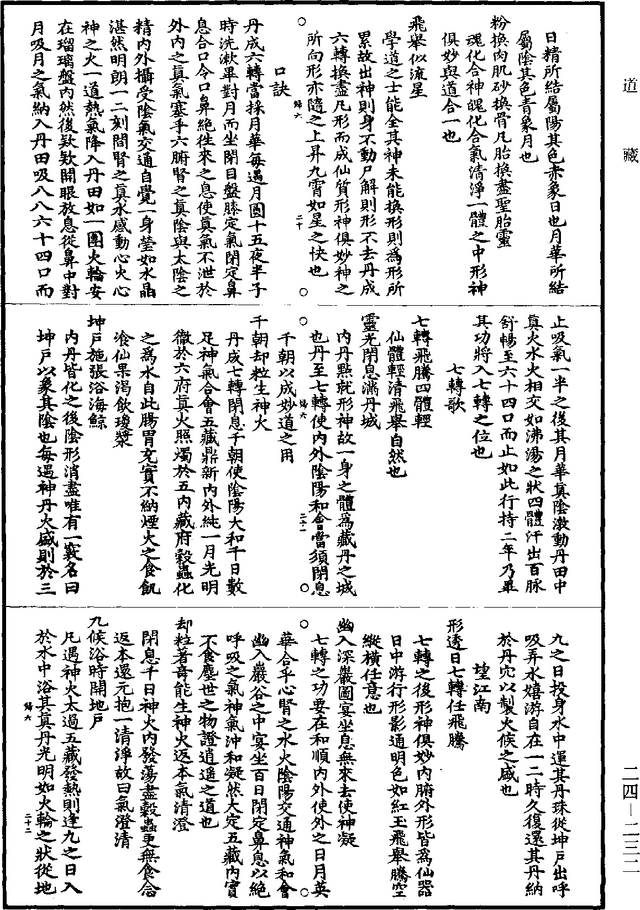 道藏
日精所結屬陽其色赤象日也月華所結
屬陰其色青象月也
粉換肉肌砂換骨凡胎換盡聖胎靈
魂化合神魄化合氣清淨一體之中形神
俱妙與道合一也
飛舉似流星
學道之士能全其神未能換形則為形所
累故出神則身不動尸解則形不去丹成
六轉換盡凡形而成仙質形神俱妙神之
所向形亦隨之上昇九霄如星之快也
口訣
丹成六轉當採月華每遇月圓十五夜半子
時洗漱畢對月而坐閉目盤膝定氣閉定鼻
息合口令口鼻絕往來之息使真氣不泄於
外內之真氣塞乎六腑腎之真陰與太陰之
精內外攝受陰氣交通自覺一身瑩如水晶
湛然明朗一二刻間腎之真水感動心火心
神之火一道熱氣降入丹田如一團火輪安
在瑠璃盤內然後欵欵開眼放息從鼻中對
月吸月之氣納入丹田吸八八六十四口而
止吸氣一半之後其月華真陰激動丹田中
真火水火相交如沸湯之狀四體汗出百脉
舒暢至六十四口而止如此行持二年乃畢
其功將入七轉之位也
七轉歌
七轉飛騰四體輕
仙體輕清飛舉自然也
靈光閉息滿丹城
內丹點就形神故一身之體為藏丹之城
也丹至七轉使內外陰陽和會當須閉息
千朝以成妙道之用
千朝却粒生神火
丹成七轉閉息千朝使陰陽大和千日數
足神氣合會五藏鼎新內外純一月光明
徹於六府真火照燭於五內藏府穀蟲化
之為水自此腸胃充實不納煙火之食飢
飡仙果渴飲瓊漿
坤戸施張浴海鯨
內丹皆化之後陰形消盡唯有一竅名曰
坤戸以象其陰也每遇神丹火盛則於三
九之日投身水中運其丹珠從坤戸出呼
吸弄水嬉游自在一二時久復還其丹納
於丹穴以製火候之盛也
望江南
形透日七轉任飛騰
七轉之後形神俱妙內腑外形皆為仙器
日中游行形影通明色如紅玉飛舉騰空
縱橫任意也
幽入深巖圖宴坐息無來去使神凝
七轉之功要在和順內外使外之日月英
華合乎心腎之水火陰陽交通神氣和會
幽入巖谷之中宴坐百日閉定鼻息以絕
呼吸之氣神氣沖和凝然大定五藏內實
不食塵世之物證逍遥之道也
却粒著奇能生神火返本氣清澄
閉息千日神火內發蕩盡穀蟲更無食合
返本還元抱一清淨故曰氣澄清
九候浴時開地戸
凡遇神火太過五藏發熱則逢九之日入
於水中浴其真丹光明如火輪之狀從地
歸六
二十
歸六
二十一
歸六
二十二
二四—二三二